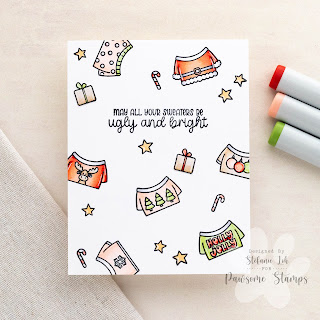 MAY ALL YOUR SWEATERS BE
ugly and bright
HOLLY
JOLLY
Designed by
Stefanie Loh
FOR
Pawsome Stamps